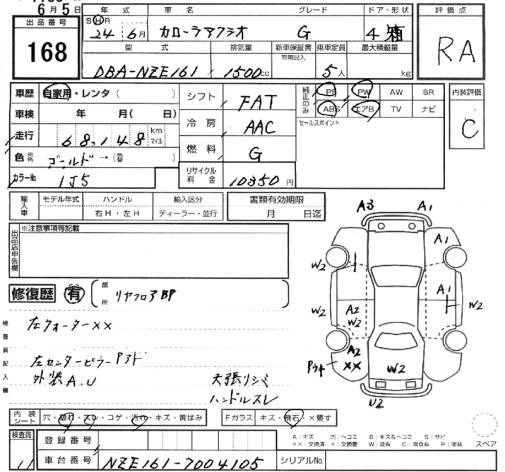 6月5日
出品番号
168
年式
車名
グレード
ドア・形状
SⒽR
24年6月
カローラアクシオ
G
4 箱
型式
排気量
新車保証書
乗車定員
最大積載量
DBA-NZE161
1500cc
5人
kg
評価点
RA
車歴 自家用・レンタ( )
車検 年 月( )日
走行 68,148 km マイル
色 ゴールド→( )
カラーNo 1J5
シフト FAT
冷房 AAC
燃料 G
リサイクル料金 10850円
純正のみ
PS PW AW SR
ABS エアB TV ナビ
セールスポイント
内装評価
C
輸入車
モデル年式
ハンドル
右H・左H
輸入区分
ディーラー・並行
書類有効期限
月 日迄
出品店申告欄
※注意事項等記載
修復歴 有 箇所 リヤフロアBP
検査員記入欄
左クォーター××
左センターピラー
外装A.U
天張りシミ
ハンドルスレ
A3 A1
A1
W2 W2
A1
A2
W2
W2
A2
××
W2
U2
内装シート 穴・切れ・スレ・コゲ・汚れ・キズ・黄ばみ
Fガラス キズ・飛石・×要す
A:キズ U:ヘコミ B:キズ&ヘコミ S:サビ
××:交換済 ×:要交換 W:波有 C:腐食有 P:塗装
スペア
検査員
登録番号
車台番号 NZE161-7004105
シリアルNo.